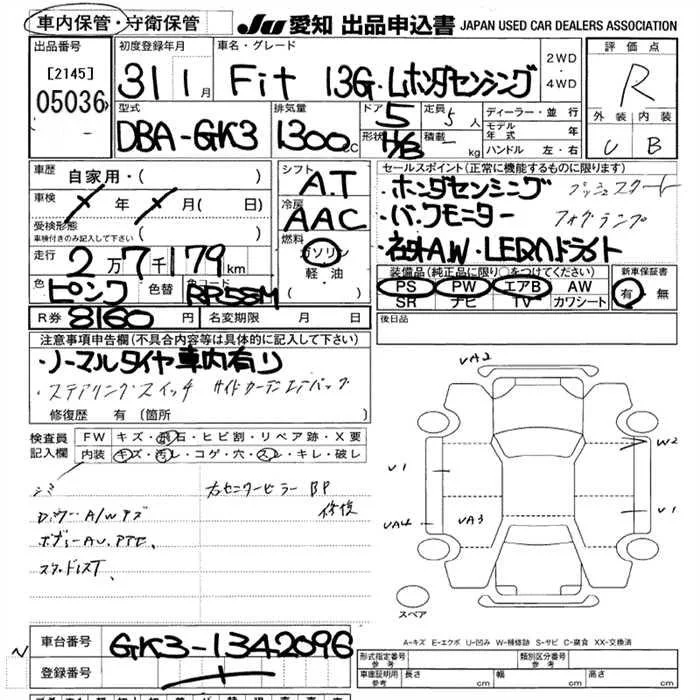 車内保管・守衛保管 JU 愛知 出品申込書 JAPAN USED CAR DEALERS ASSOCIATION
出品番号 [2145] 05036
初度登録年月 31 1月
車名・グレード Fit 13G・Lホンダセンシング
2WD・4WD
評価点 R
外装 内装
U B
型式 DBA-GK3
排気量 1300cc
ドア 5
形状 H/B
定員 5人
積載 - kg
ディーラー・並行
モデル年式 年
ハンドル 左・右
車歴 自家用・( )
車検 年 月( 日)
受検形態 車検付きのみ記入して下さい ( )
走行 2万7千179km
色 ピンク 色替 色コード RR55M
シフト A.T
冷房 AAC
燃料 ガソリン 軽・油
R券 8160円 名変期限 月 日
セールスポイント(正常に機能するものに限ります)
・ホンダセンシング プッシュスタート
・バックモニター フォグランプ
・社外AW・LEDヘッドライト
装備品(純正品に限り○をつけてください)
PS PW エアB AW
SR ナビ TV カワシート
新車保証書 有・無
後日品
注意事項申告欄(不具合内容等は具体的に記入して下さい)
・ノーマルタイヤ車内有り
・ステアリングスイッチ サイドカーテンエアバッグ
修復歴 有(箇所 )
検査員記入欄
FW キズ・飛石・ヒビ割・リペア跡・X要
内装 キズ・汚レ・コゲ・穴・スレ・キレ・破レ
シミ
右センターピラー BP
修復
VA2
W2
V1
VA4
VA3
V1
スペア
A-キズ E-エクボ U-凹み W-補修跡 S-サビ C-腐食 XX-交換済
車台番号 GK3-1342096
登録番号
形式指定番号 参考
類別区分番号 参考
車庫証明用 参考 長さ cm 幅 cm 高さ cm